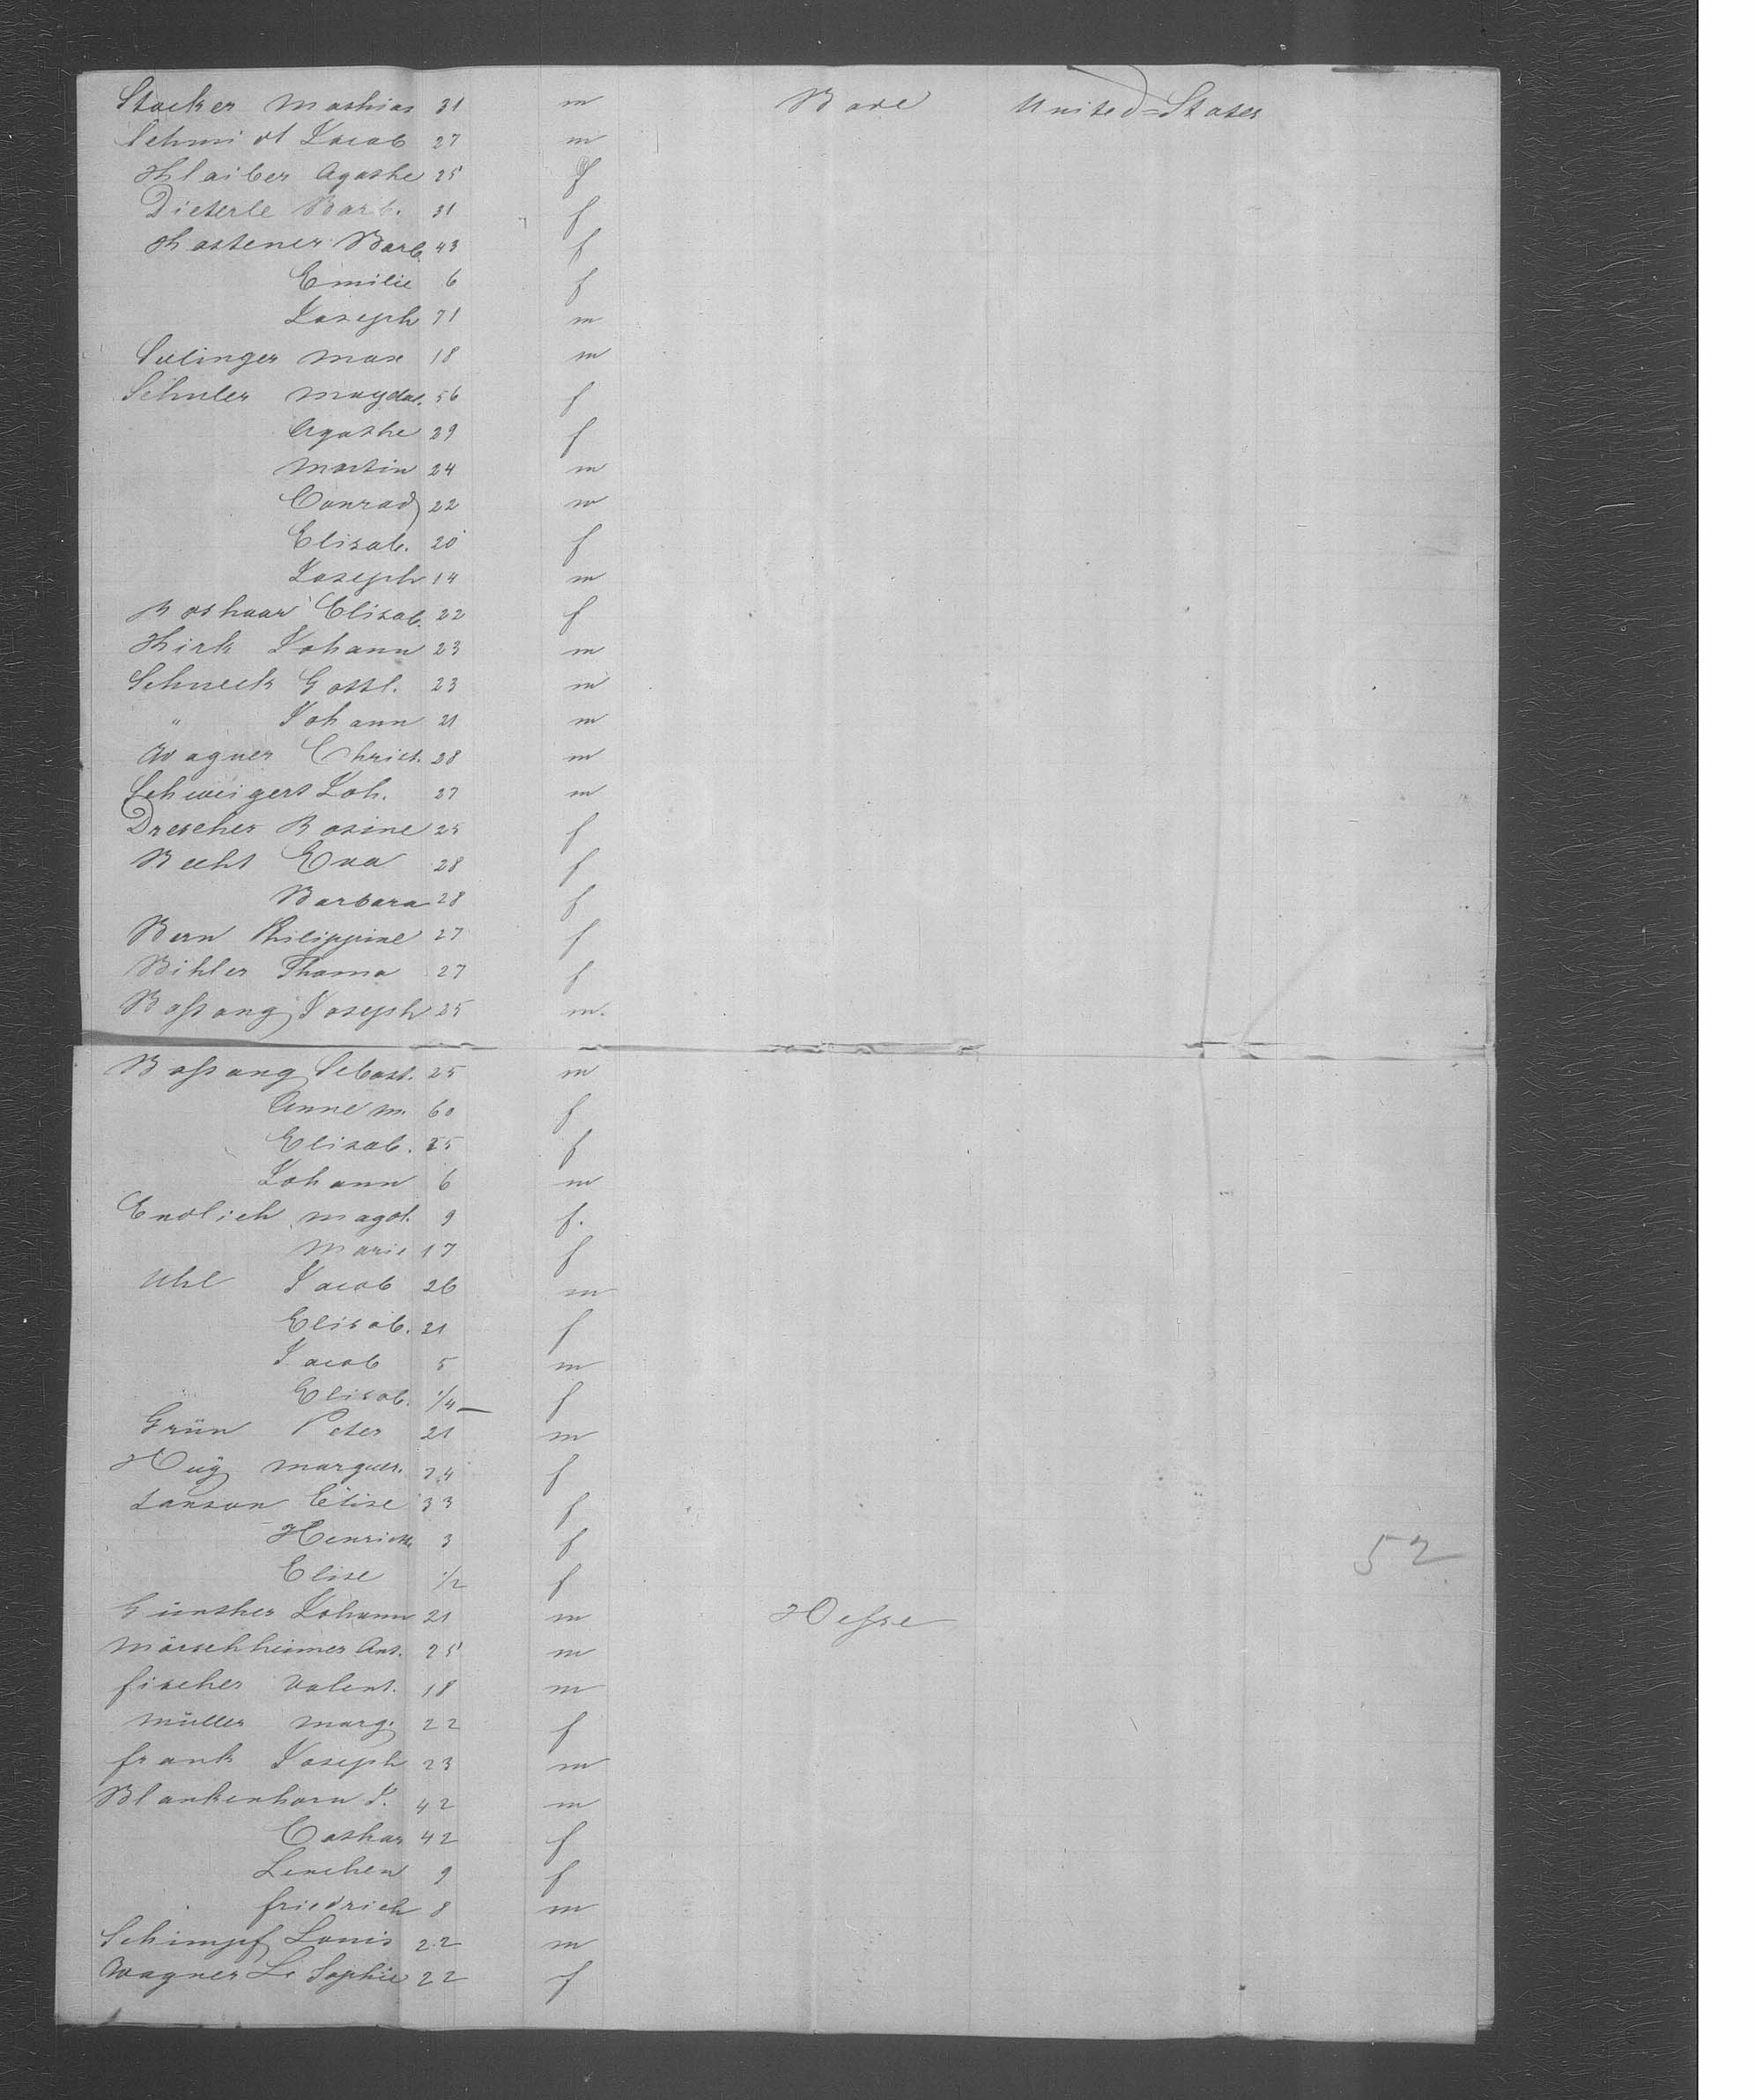 Stocker Mathias 31 m Bade United=States
Schmidt Jacob 27 m
Klaiber Agathe 25 f
Dieterle Barb. 31 f
Kastener Barb. 43 f
Emilie 6 f
Joseph 71 m
Sulinger Max 18 m
Schuler Magdal. 56 f
Agathe 29 f
Martin 24 m
Conrad 22 m
Elisab. 20 f
Joseph 14 m
Roshaar Elisab. 22 f
Kirk Johann 23 m
Schneck Gottl. 23 m
" Johann 21 m
Wagner Christ. 28 m
Schweigert Joh. 27 m
Drescher Rosine 25 f
Becht Eva 28 f
Barbara 28 f
Bern Philippine 27 f
Bihler Thoma 27 f
Boßang Joseph 25 m.
Boßang Sebast. 25 m
Anne M. 60 f
Elisab. 25 f
Johann 6 m
Endlich Magd. 9 f.
Marie 17 f
Uhl Jacob 26 m
Elisab. 21 f
Jacob 5 m
Elisab. 1/4 f
Grün Peter 21 m
Hüg Marguer. 74 f
Janson Elise 33 f
Henriette 3 f 52
Elise 1/2 f
Günther Johann 21 m Heßse
Mörschheimer Ant. 25 m
fischer Valent. 18 m
Müller Marg. 22 f
frank Joseph 23 m
Blankenhorn J. 42 m
Cathar 42 f
Lenchen 9 f
friedrich 8 m
Schimpf Louis 22 m
Wagner L. Sophie 22 f